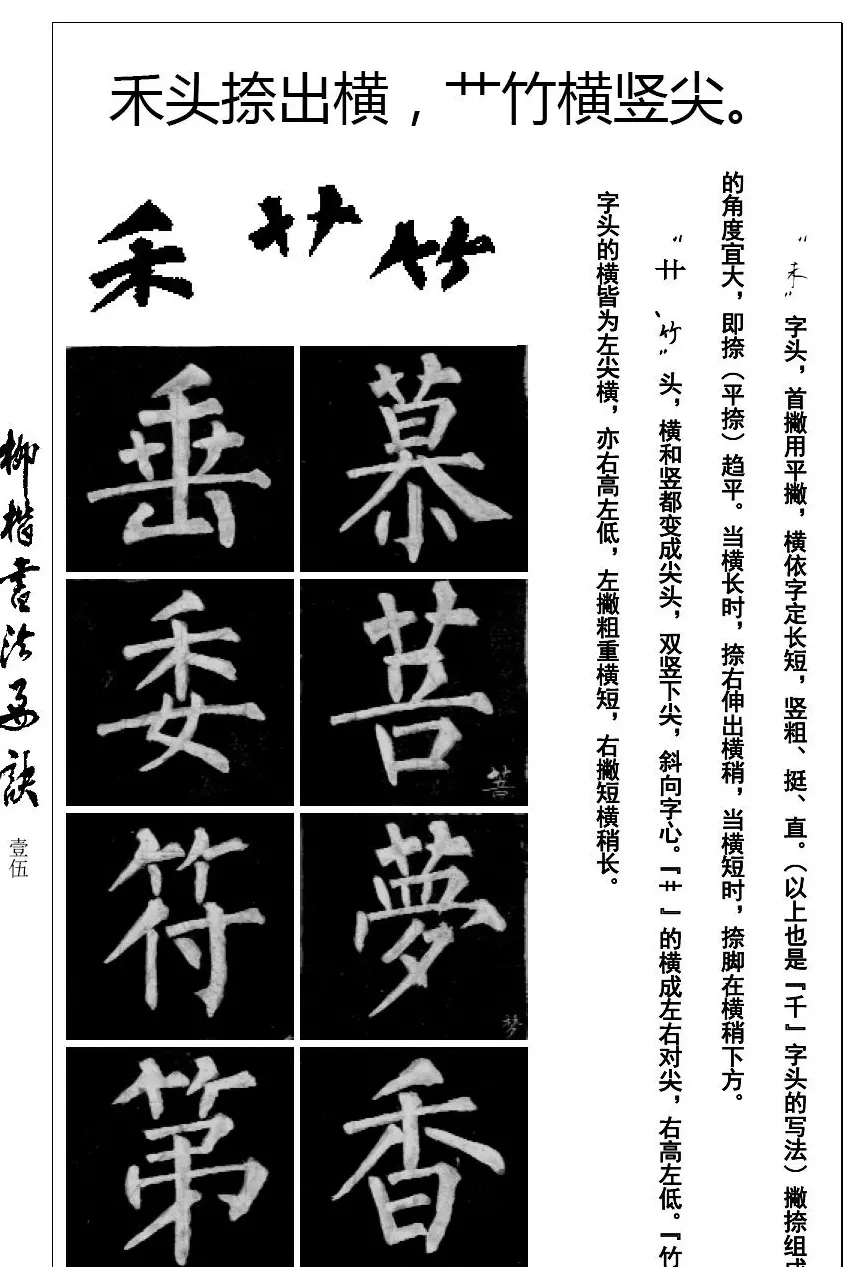 禾头捺出横，艹竹横竖尖。
禾 艹 竹
“禾”字头，首撇用平撇，横依字定长短，竖粗、挺、直。（以上也是『千』字头的写法）撇捺组成
的角度宜大，即捺（平捺）趋平。当横长时，捺右伸出横稍，当横短时，捺脚在横稍下方。
“艹、竹”头，横和竖都变成尖头，双竖下尖，斜向字心。『艹』的横成左右对尖，右高左低。『竹
字头的横皆为左尖横，亦右高左低，左撇粗重横短，右撇短横稍长。
垂 慕
委 菩
菩
符 夢
梦
第 香
柳楷書法要訣
壹伍